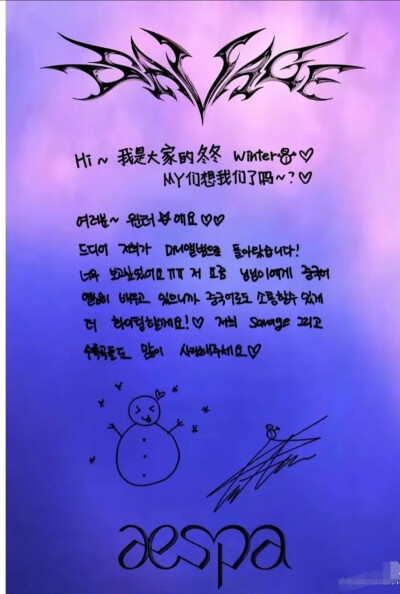 SAVAGE
Hi ~ 我是大家的冬冬 Winter☃♡
MY们想我们了吗~?♡
여러분~ 윈터예요♡♡
드디어 저희가 미니앨범으로 돌아왔습니다!
너무 보고싶었어요 ㅠㅠ 저 요즘 닝닝이에게 중국어
열심히 배우고 있으니까 중국어로도 소통할 수 있게
더 화이팅할게요!♡ 저희 Savage 그리고
수록곡들도 많이 사랑해주세요♡
aespa